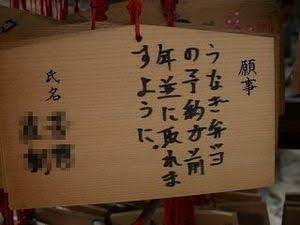 願事
うなぎ弁当
の予約が前
年並に取れま
すように。
氏名